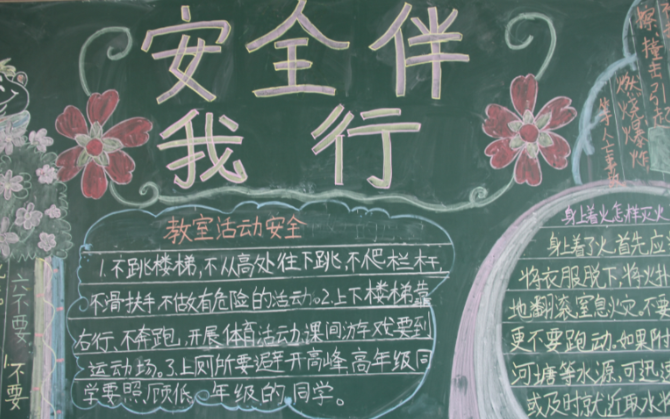 安全伴
我行
教室活动安全
1.不跳楼梯,不从高处往下跳,不爬栏杆
不滑扶手,不做有危险的活动。2.上下楼梯靠
右行,不奔跑,开展体育活动,课间游戏要到
运动场。3.上厕所要避开高峰,高年级同
学要照顾低年级的同学。
六不要
不要
擦,撞击引起
燃烧爆炸
身上着火怎样灭火
身上着了火,首先应
将衣服脱下,将火
地翻滚窒息火灾。不要
更不要跑动。如果附
河塘等水源,可迅速
或及时就近用水